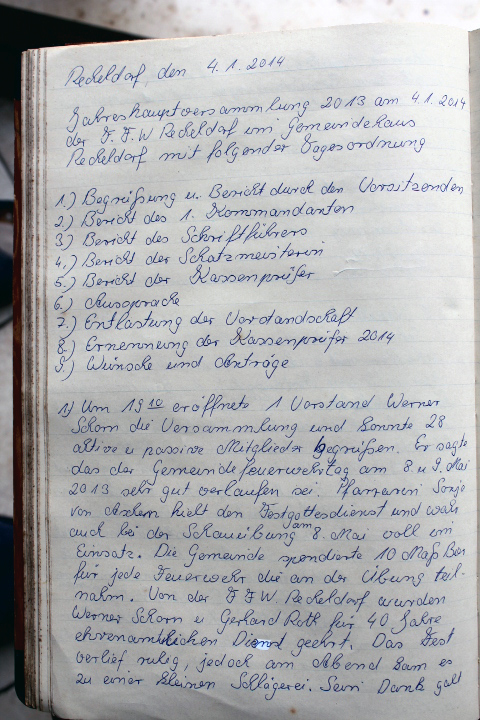 Recheldorf den 4.1.2014
Jahreshauptversammlung 2013 am 4.1.2014
der F.F.W Recheldorf im Gemeindehaus
Recheldorf mit folgender Tagesordnung
1.) Begrüßung u. Bericht durch den Vorsitzenden
2.) Bericht des 1. Kommandanten
3.) Bericht des Schriftführers
4.) Bericht der Schatzmeisterin
5.) Bericht der Kassenprüfer
6.) Aussprache
7.) Entlastung der Vorstandschaft
8.) Ernennung der Kassenprüfer 2014
9.) Wünsche und Anträge
1.) Um 19 10 eröffnete 1 Vorstand Werner
Schorn die Versammlung und konnte 28
aktive u passive Mitglieder begrüßen. Er sagte
das der Gemeindefeuerwehrtag am 8 u 9. Mai
2013 sehr gut verlaufen sei. Pfarrerin Sonja
von Aschen hielt den Festgottesdienst und wahr
auch bei der Schauübung am 8. Mai voll im
Einsatz. Die Gemeinde spendierte 10 Maß Bier
für jede Feuerwehr die an der Übung teil-
nahm. Von der F F W Recheldorf wurden
Werner Schorn u Gerhard Roth für 40 Jahre
ehrenamtlichen Dienst geehrt. Das Fest
verlief ruhig, jedoch am Abend kam es
zu einer kleinen Schlägerei. Sein Dank galt